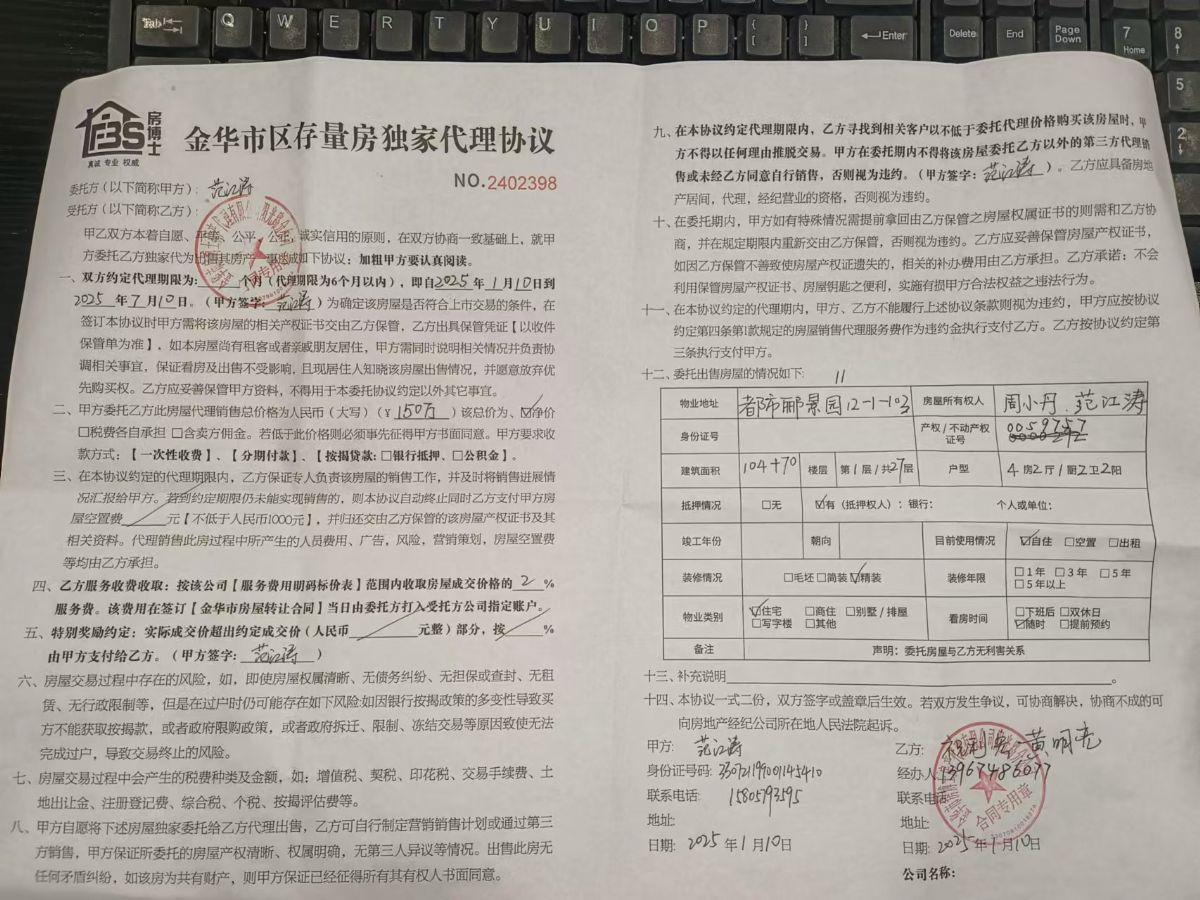 Tab
Q W E R T Y U I O P { [ } ] Enter Delete End Page Down 7 Home 8
5
2
FBS
房博士
真诚 专业 权威
金华市区存量房独家代理协议
NO.2402398
委托方（以下简称甲方）：范江涛
受托方（以下简称乙方）：
甲乙双方本着自愿、平等、公平、公正、诚实信用的原则，在双方协商一致基础上，就甲
方委托乙方独家代为出售其房产事宜达成如下协议：加粗甲方要认真阅读。
一、双方约定代理期限为： 个月（代理期限为6个月以内），即自2025年1月10日到
2025年7月10日。（甲方签字：范江涛）为确定该房屋是否符合上市交易的条件，在
签订本协议时甲方需将该房屋的相关产权证书交由乙方保管，乙方出具保管凭证【以收件
保管单为准】，如本房屋尚有租客或者亲戚朋友居住，甲方需同时说明相关情况并负责协
调相关事宜，保证看房及出售不受影响，且现居住人知晓该房屋出售情况，并愿意放弃优
先购买权。乙方应妥善保管甲方资料，不得用于本委托协议约定以外其它事宜。
二、甲方委托乙方此房屋代理销售总价格为人民币（大写）（¥150万）该总价为、☑净价
□税费各自承担 □含卖方佣金。若低于此价格则必须事先征得甲方书面同意。甲方要求收
款方式：【一次性收费】、【分期付款】、【按揭贷款：□银行抵押、□公积金】。
三、在本协议约定的代理期限内，乙方保证专人负责该房屋的销售工作，并及时将销售进展情
况汇报给甲方。若到约定期限仍未能实现销售的，则本协议自动终止同时乙方支付甲方房
屋空置费 元【不低于人民币1000元】，并归还交由乙方保管的该房屋产权证书及其
相关资料。代理销售此房过程中所产生的人员费用、广告，风险，营销策划，房屋空置费
等均由乙方承担。
四、乙方服务收费收取：按该公司【服务费用明码标价表】范围内收取房屋成交价格的2%
服务费。该费用在签订【金华市房屋转让合同】当日由委托方打入受托方公司指定账户。
五、特别奖励约定：实际成交价超出约定成交价（人民币 元整）部分，按 %
由甲方支付给乙方。（甲方签字：范江涛）
六、房屋交易过程中存在的风险，如，即使房屋权属清晰、无债务纠纷、无担保或查封、无租
赁、无行政限制等，但是在过户时仍可能存在如下风险:如因银行按揭政策的多变性导致买
方不能获取按揭款，或者政府限购政策，或者政府拆迁、限制、冻结交易等原因致使无法
完成过户，导致交易终止的风险。
七、房屋交易过程中会产生的税费种类及金额，如：增值税、契税、印花税、交易手续费、土
地出让金、注册登记费、综合税、个税、按揭评估费等。
八、甲方自愿将下述房屋独家委托给乙方代理出售，乙方可自行制定营销销售计划或通过第三
方销售，甲方保证所委托的房屋产权清晰、权属明确，无第三人异议等情况。出售此房无
任何矛盾纠纷，如该房为共有财产，则甲方保证已经征得所有其有权人书面同意。
九、在本协议约定代理期限内，乙方寻找到相关客户以不低于委托代理价格购买该房屋时，甲
方不得以任何理由推脱交易。甲方在委托期内不得将该房屋委托乙方以外的第三方代理销
售或未经乙方同意自行销售，否则视为违约。（甲方签字：范江涛）。乙方应具备房地
产居间，代理，经纪营业的资格，否则视为违约。
十、在委托期内，甲方如有特殊情况需提前拿回由乙方保管之房屋权属证书的则需和乙方协
商，并在规定期限内重新交由乙方保管，否则视为违约。乙方应妥善保管房屋产权证书，
如因乙方保管不善致使房屋产权证遗失的，相关的补办费用由乙方承担。乙方承诺：不会
利用保管房屋产权证书、房屋钥匙之便利，实施有损甲方合法权益之违法行为。
十一、在本协议约定的代理期内，甲方、乙方不能履行上述协议条款则视为违约，甲方应按协议
约定第四条第1款规定的房屋销售代理服务费作为违约金执行支付乙方。乙方按协议约定第
三条执行支付甲方。
十二、委托出售房屋的情况如下: 11
物业地址 都市郦景园12-1-103 房屋所有权人 周小丹、范江涛
身份证号 产权/不动产权证号 0059757
建筑面积 104+70 楼层 第1层/共27层 户型 4房2厅1厨2卫2阳
抵押情况 □无 ☑有（抵押权人）：银行： 个人或单位：
竣工年份 朝向 目前使用情况 ☑自住 □空置 □出租
装修情况 □毛坯 □简装 ☑精装 装修年限 □1年 □3年 □5年 □5年以上
物业类别 ☑住宅 □商住 □别墅/排屋 □写字楼 □其他 看房时间 □下班后 □双休日 ☑随时 □提前预约
备注 声明：委托房屋与乙方无利害关系
十三、补充说明 。
十四、本协议一式二份，双方签字或盖章后生效。若双方发生争议，可协商解决，协商不成的可
向房地产经纪公司所在地人民法院起诉。
甲方: 范江涛
身份证号码: 330721197001145410
联系电话: 15805793595
地址:
日期: 2025年1月10日
乙方: 黄明亮
经办人: 13967486077
联系电话
地址:
日期: 2025年1月10日
公司名称:
合同专用章
合同专用章